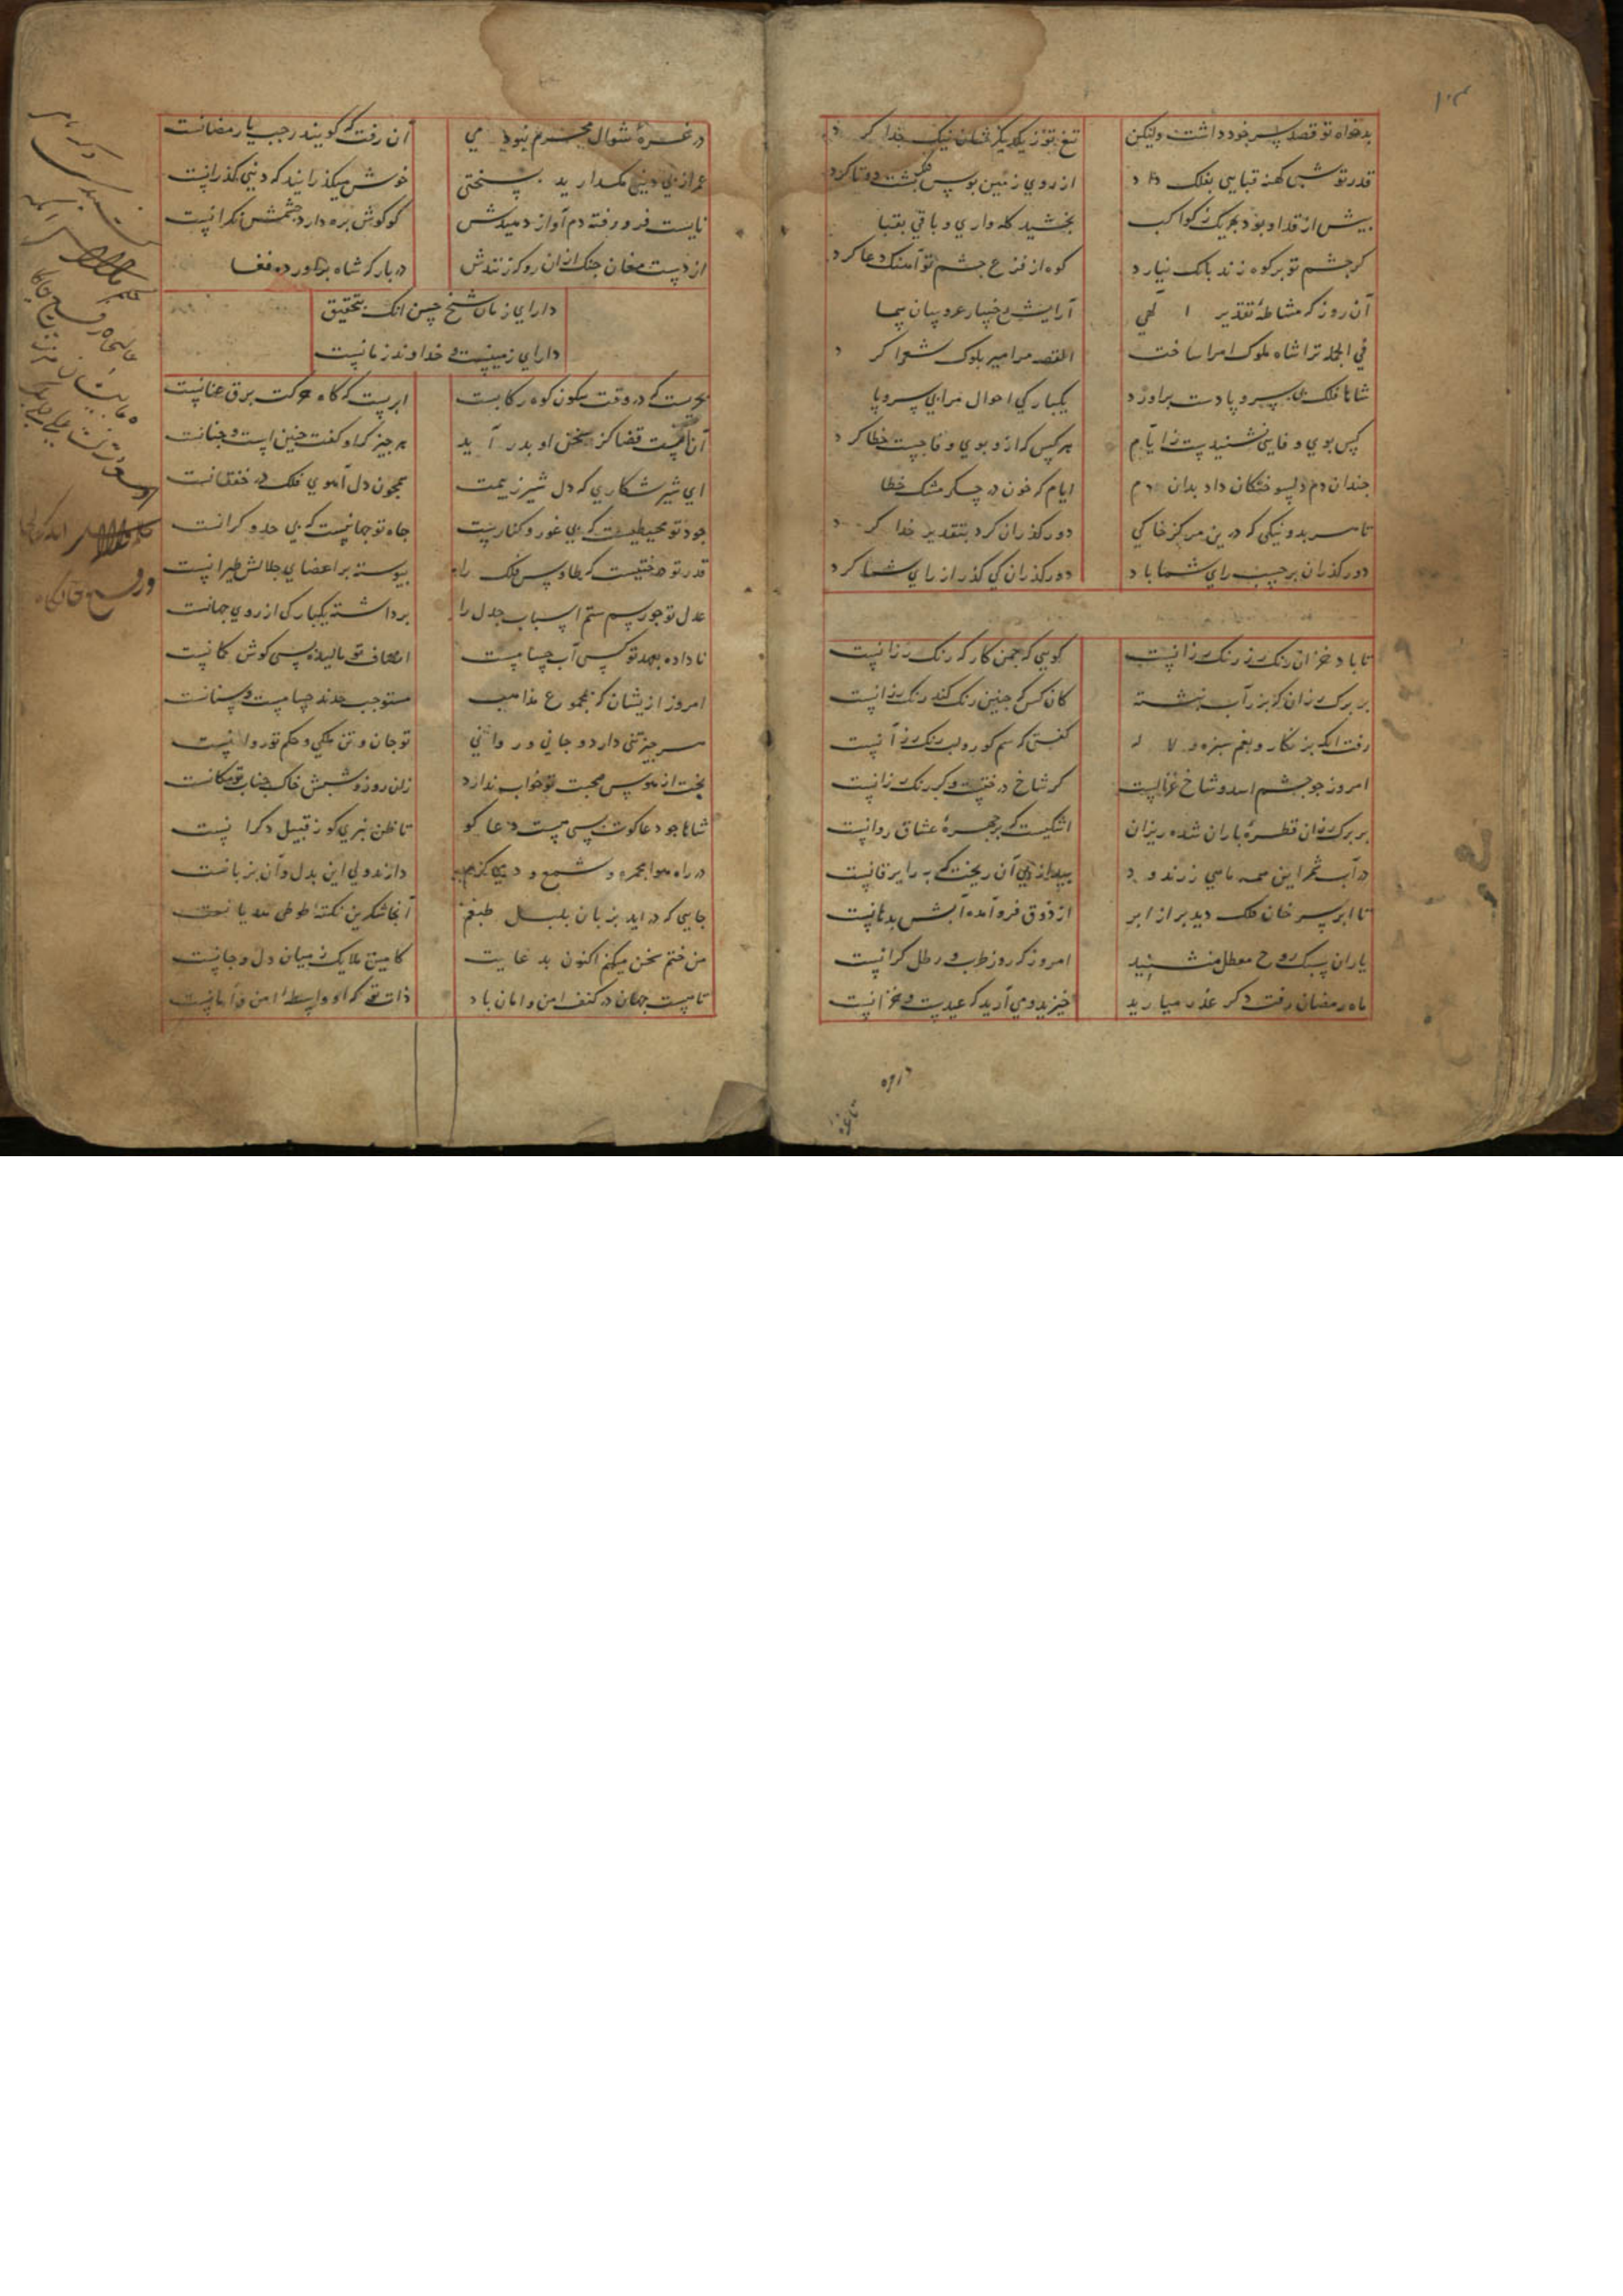 بدخواه تو قصد سر خود داشت ولیکن تیغ تو ز یکدیگرشان نیک جدا کرد
قدر تو شبی کهنه قبایی بفلک داد از روی زمین بوس فلک پشت دوتا کرد
بیش از قد او بود بهر یک ز کواکب بخشید کله واری و باقی بقبا
گر خشم تو بر کوه زند بانک نیارد کوه از فزع خشم تو آهنک دعا کرد
آن روز که مشاطه تقدیر الهی آرایش رخسار عروسان سما
فی الجمله ترا شاه ملوک امرا ساخت القصه مرا میر ملوک شعرا کرد
شاها فلک بی سر و پا دست برآورد یکبارکی احوال مرا بی سر و پا
کس بوی وفایی نشنیدست ز ایام هر کس که ازو بوی وفا جست خطا کرد
چندان دم دلسوختکان داد بدان دم ایام که خون در جکر مشک خطا
تا سر بد و نیکی که درین مرکز خاکی دور کذران کرد بتقدیر خدا کرد
دور کذران بر حسب رای شما باد دور کذران کی کذر از رای شما کرد
تا باد خزان رنک رز رنک رزانست کویی که چمن کارکه رنک رزانست
بر برک رزان کز زر آب نبشته کان کس که چنین رنک کند رنک رزانست
رفت انکه بر نکار و بغم سبزه و لاله کفتی که سم کور و لب رنک رزانست
امروز چو چشم اسد و شاخ غزالست کر شاخ درختست و کر رنک رزانست
بر برک رزان قطره باران شده ریزان اشکیست که بر چهره عشاق روانست
در آب شمر این همه ماهی زر اندود بید از پی آن ریخت که بیرایرقانست
تا ابر سر خان فلک دید پر از ابر از ذوق فرو آمده آبش بدهانست
یاران سبک روح معطل منشینید امروز که روز طرب و رطل کرانست
ماه رمضان رفت دکر عذر میارید خیزید و می آرید که عیدست و خزانست
در غره شوال محرم نبود می آن رفت که کویند رجب یا رمضانست
عمر از پی دنیی مکدارید بسختی خوش میکذرانید که دنیی کذرانست
نایست فرو رفته دم آواز دهیدش کو کوش بره دارد و چشمش نکرانست
از دست مغان چنک ازان رو که زنندش در بارکه شاه برآورده فغا
دارای زمان شیخ حسن انک بتحقیق
دارای زمینست و خداوند زمانست
بحریست که در وقت سکون کوه رکابست ابریست که کاه حرکت برق عنانست
آن نیست قضا کز سخن او بدر آید هر چیز که او کفت چنین است چنانست
ای شیر شکاری که دل شیر ز بیمت همچون دل آهوی فلک در خفقانست
جود تو محیطیست که بی غور و کنارست جاه تو جهانیست که بی حد و کرانست
قدر تو درختیست که طاوس فلک را پیوسته بر اعضای جلالش طیرانست
عدل تو چو رسم ستم اسباب جدل را برداشته یکبارکی از روی جهانست
ناداده بعهد تو کسی آب حسامست انصاف تو مالیده بسی کوش کمانست
امروز ازیشان که بمجموع مذاهب مستوجب حدند حسامست و سنانست
هر چیز تنی دارد و جانی و روانی تو جان و تن ملکی و حکم تو روانست
بخت از هوس صحبت تو خواب ندارد زان روز و شبش خاک جناب تو مکانست
شاها چو دعا کوت بسی هست دعا کو تا ظن نبری کو ز قبیل دکرانست
در راه هوا مجمره و شمع دارند ولی این بدل و آن بزبانست
جایی که در آید بزبان بلبل طبعم آنجا شکرین نکته طوطی هذیانست
من ختم سخن میکنم اکنون بدعایت کآمین ملایک ز میان دل و جانست
تا هست جهان در کنف امن و امان باد ذات تو که او واسطه امن و امانست